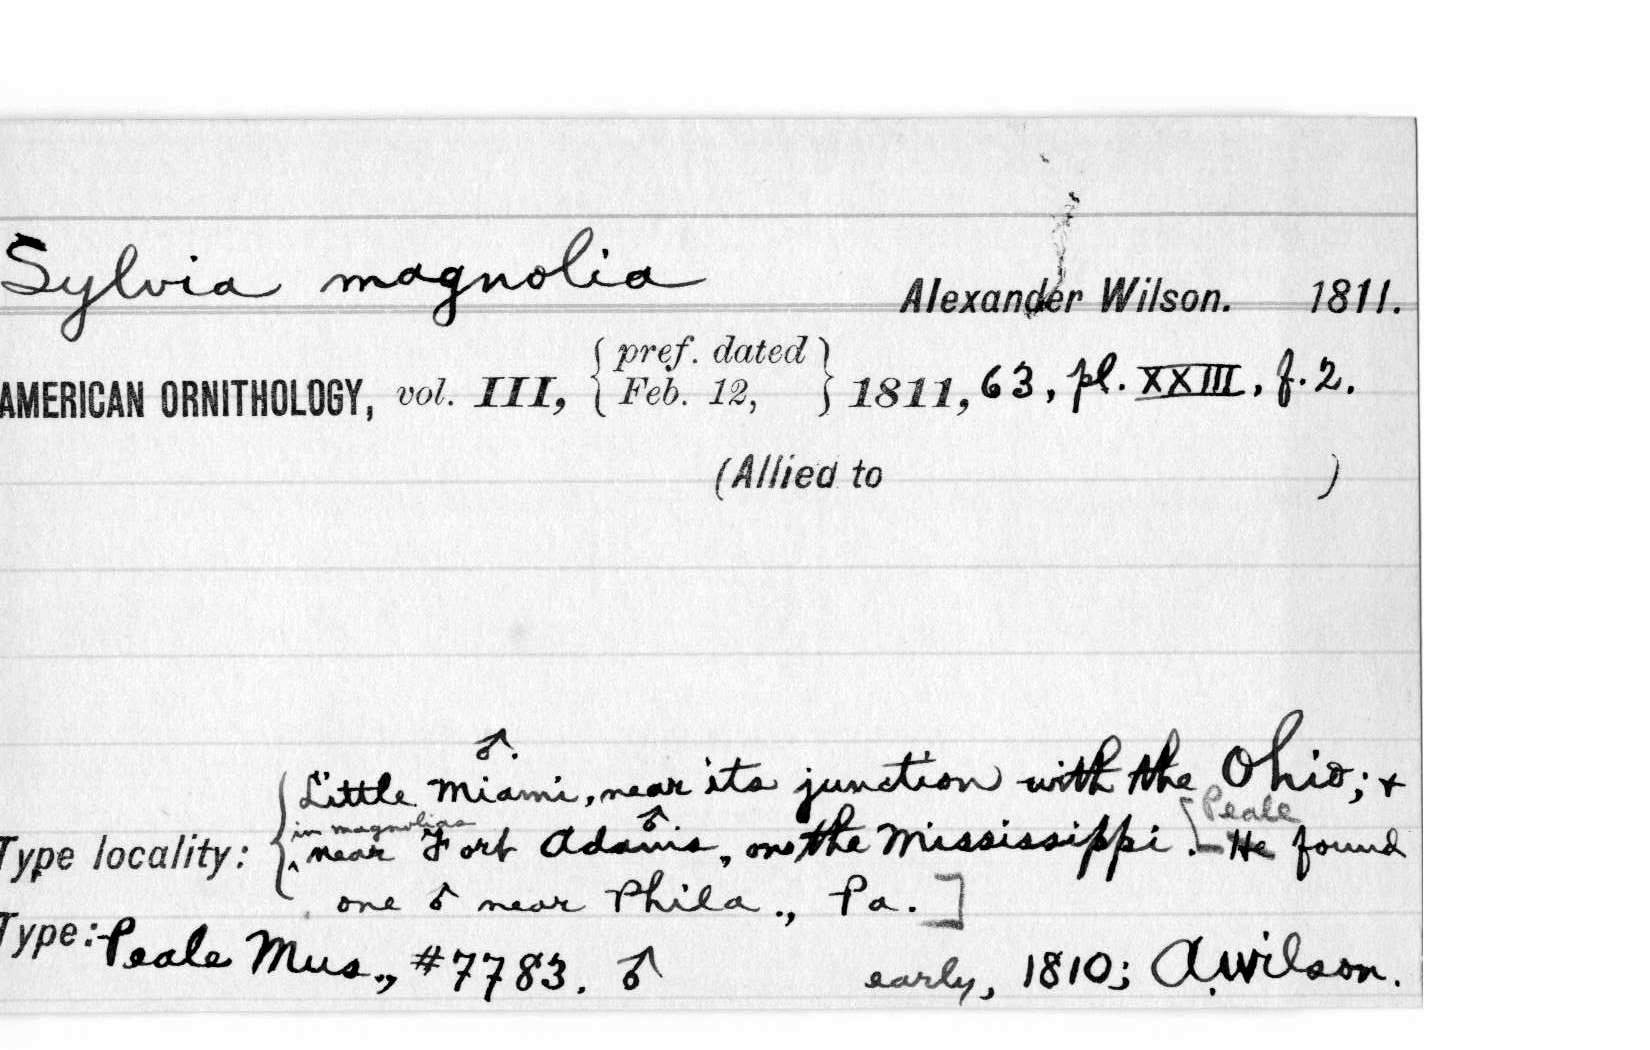 Sylvia magnolia
Alexander Wilson. 1811.
AMERICAN ORNITHOLOGY, vol. III, { pref. dated Feb. 12, } 1811, 63, pl. XXIII, f. 2.
(Allied to )
♂.
Little Miami, near its junction with the Ohio; &
in magnolias ♂ [Peale
Type locality: { near Fort Adams, on the Mississippi. He found
one ♂ near Phila., Pa.]
Type:- Peale Mus., #7783. ♂ early, 1810; A. Wilson.